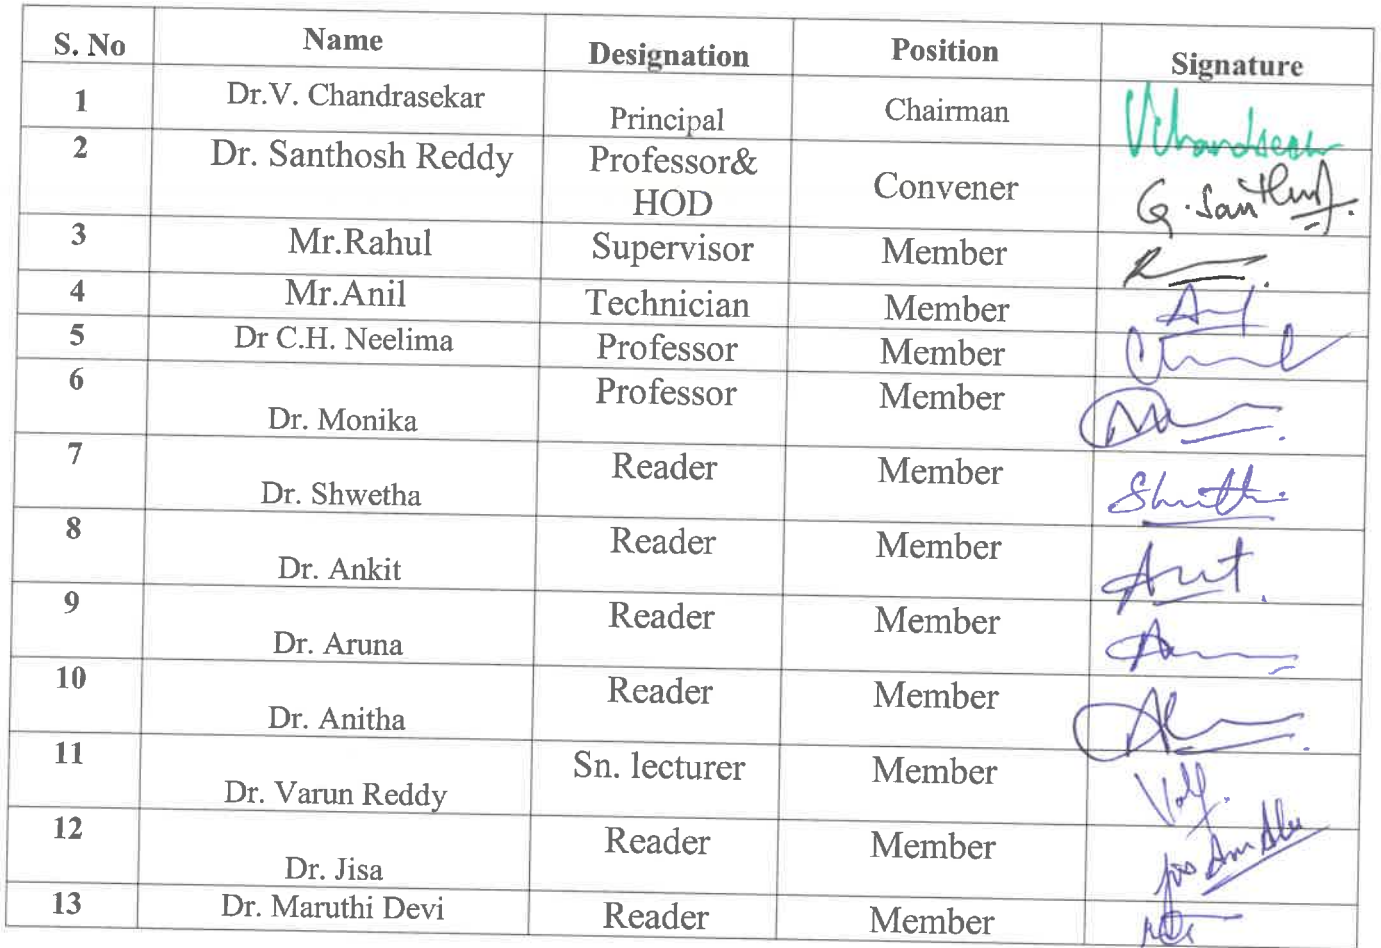 S. No Name Designation Position Signature
1 Dr.V. Chandrasekar Principal Chairman
2 Dr. Santhosh Reddy Professor& HOD Convener G. Santhosh
3 Mr.Rahul Supervisor Member
4 Mr.Anil Technician Member
5 Dr C.H. Neelima Professor Member
6 Dr. Monika Professor Member
7 Dr. Shwetha Reader Member
8 Dr. Ankit Reader Member
9 Dr. Aruna Reader Member
10 Dr. Anitha Reader Member
11 Dr. Varun Reddy Sn. lecturer Member
12 Dr. Jisa Reader Member
13 Dr. Maruthi Devi Reader Member